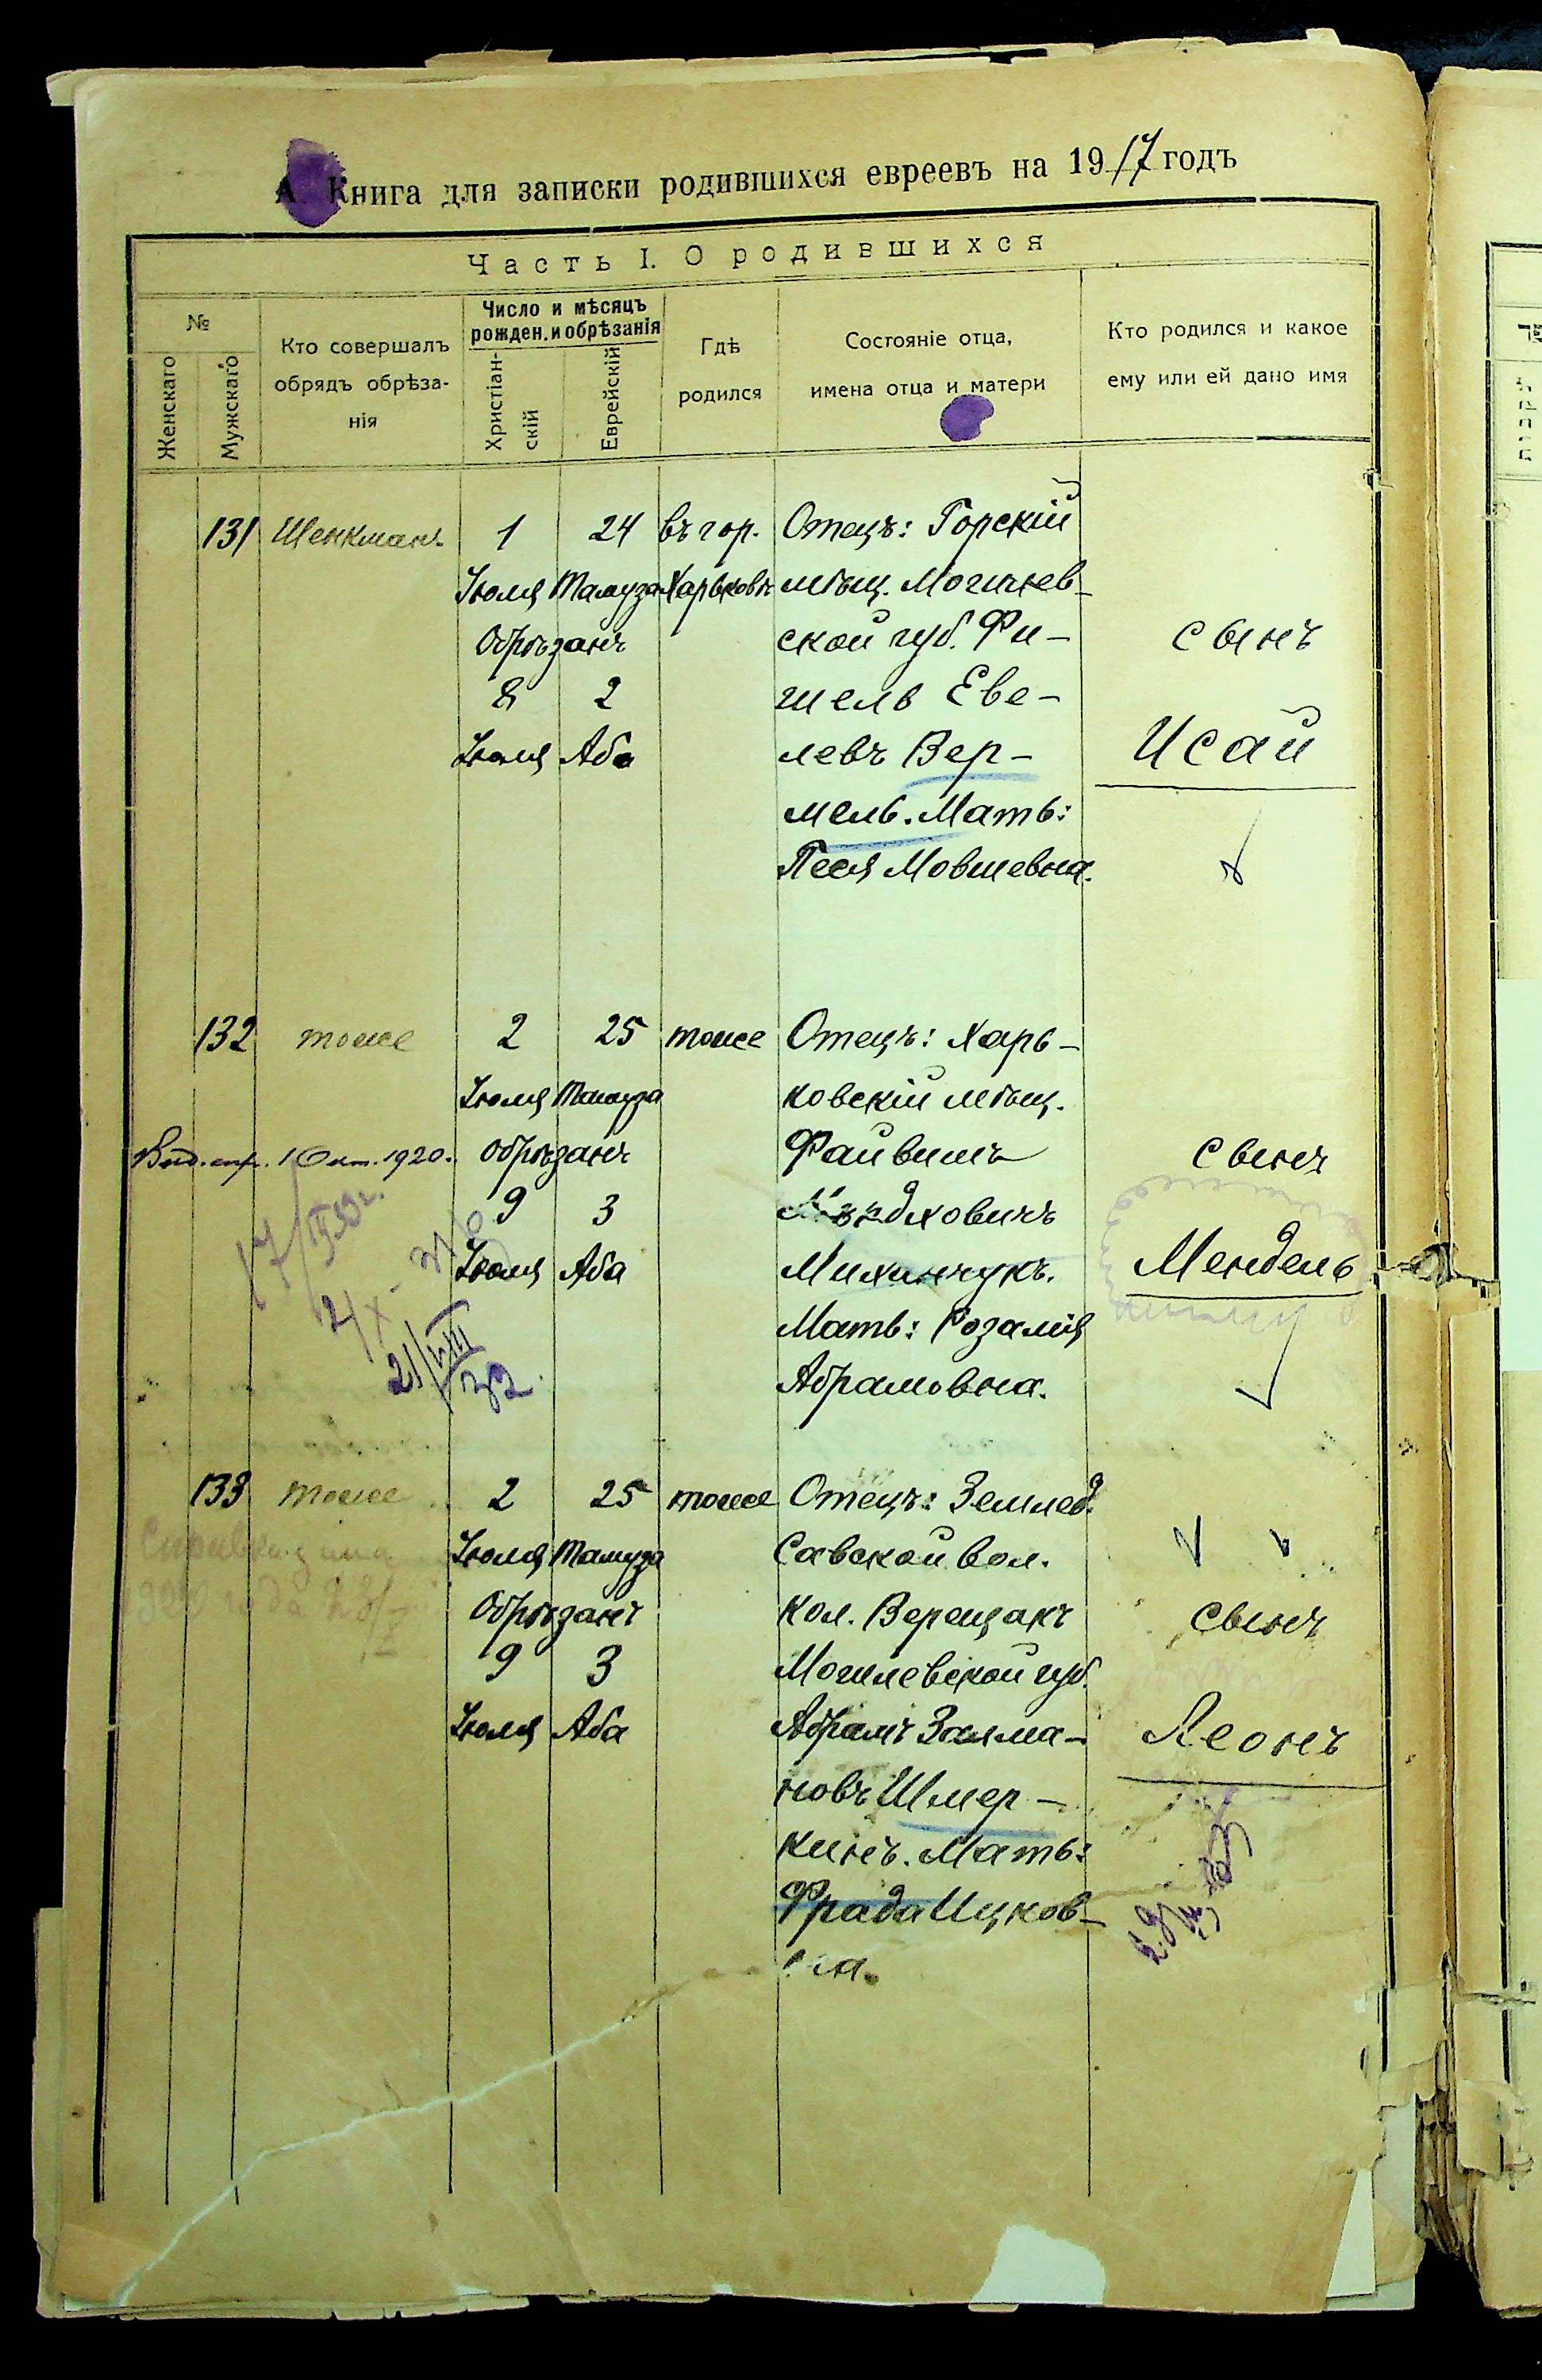 А. Книга для записки родившихся евреевъ на 1917 годъ
Часть I. О родившихся
№
Женскаго
Мужскаго
Кто совершалъ
обрядъ обрѣза-
нія
Число и мѣсяцъ
рожден. и обрѣзанія
Христіан-
скій
Еврейскій
Гдѣ
родился
Состояніе отца,
имена отца и матери
Кто родился и какое
ему или ей дано имя
131
Шенкманъ
1
Іюля
Обрѣзанъ
8
Іюля
24
Тамуза
2
Аба
въ гор.
Харьковѣ
Отецъ: Горскій
мѣщ. Могилев-
ской губ. Фи-
шель Еве-
левъ Вер-
мель. Мать:
Песя Мовшевна.
сынъ
Исай
132
тоже
Выд. спр. 1 Окт. 1920.
2
Іюля
Обрѣзанъ
9
Іюля
25
Тамуза
3
Аба
тоже
Отецъ: Харь-
ковскій мѣщ.
Файвишъ
Михинчукъ.
Мать: Розалія
Абрамовна.
сынъ
Мендель
21/VIII
32
133
тоже
2
Іюля
Обрѣзанъ
9
Іюля
25
Тамуза
3
Аба
тоже
Отецъ: Землед.
Савской вол.
кол. Верещакъ
Могилевской губ.
Абрамъ Залма-
новъ Шмер-
кинъ. Мать:
Фрада Ицков-
на.
сынъ
Леонъ